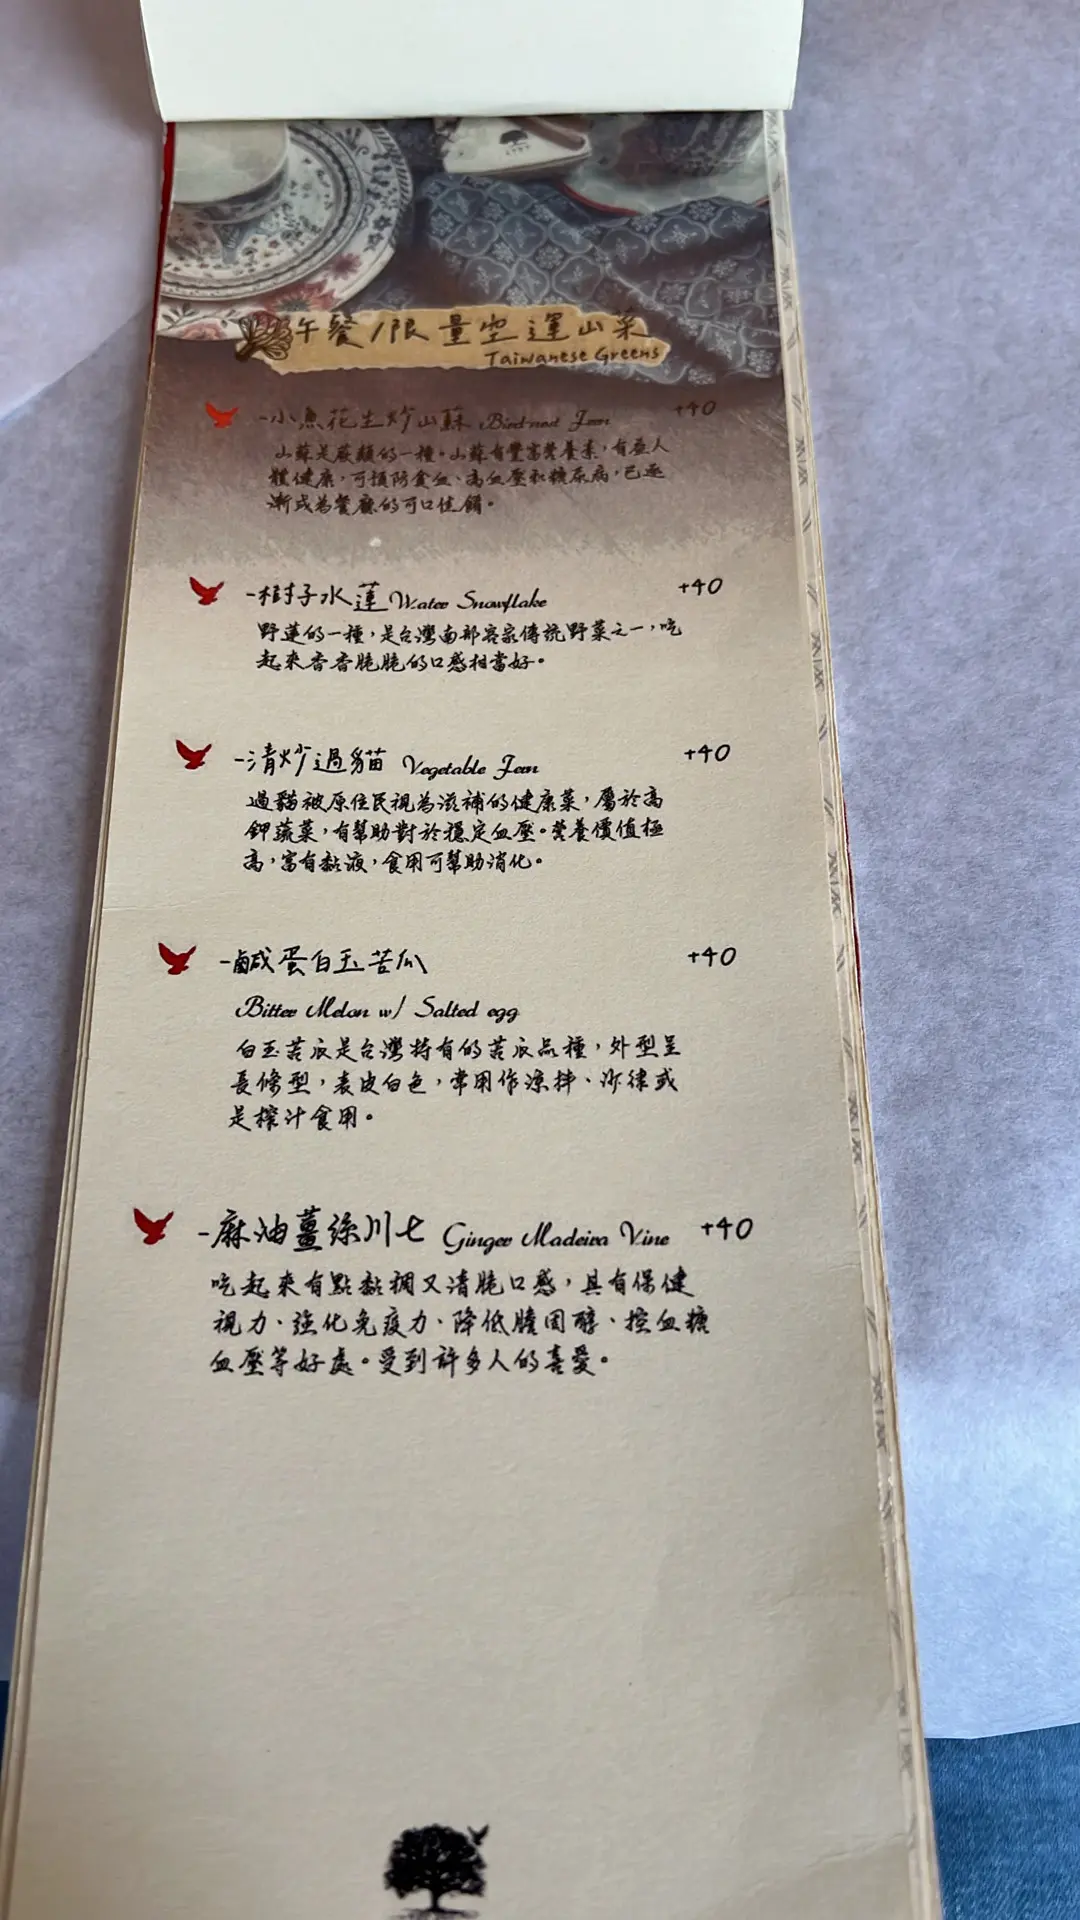 午餐/限量空運山菜
Taiwanese Greens
-小魚花生炒山蘇 Bird-nest Fern +40
山蘇是蕨類的一種。山蘇有豐富營養素，有益人
體健康，可預防貧血、高血壓和糖尿病，已逐
漸成為餐廳的可口佳餚。
-樹子水蓮 Water Snowflake +40
野蓮的一種，是台灣南部客家傳統野菜之一，吃
起來香香脆脆的口感相當好。
-清炒過貓 Vegetable Fern +40
過貓被原住民視為滋補的健康菜，屬於高
鉀蔬菜，有幫助對於穩定血壓。營養價值極
高，富有黏液，食用可幫助消化。
-鹹蛋白玉苦瓜 +40
Bitter Melon w/ Salted egg
白玉苦瓜是台灣特有的苦瓜品種，外型呈
長條型，表皮白色，常用作涼拌、沙律或
是榨汁食用。
-麻油薑絲川七 Ginger Madeira Vine +40
吃起來有點黏稠又清脆口感，具有保健
視力、強化免疫力、降低膽固醇、控血糖
血壓等好處。受到許多人的喜愛。